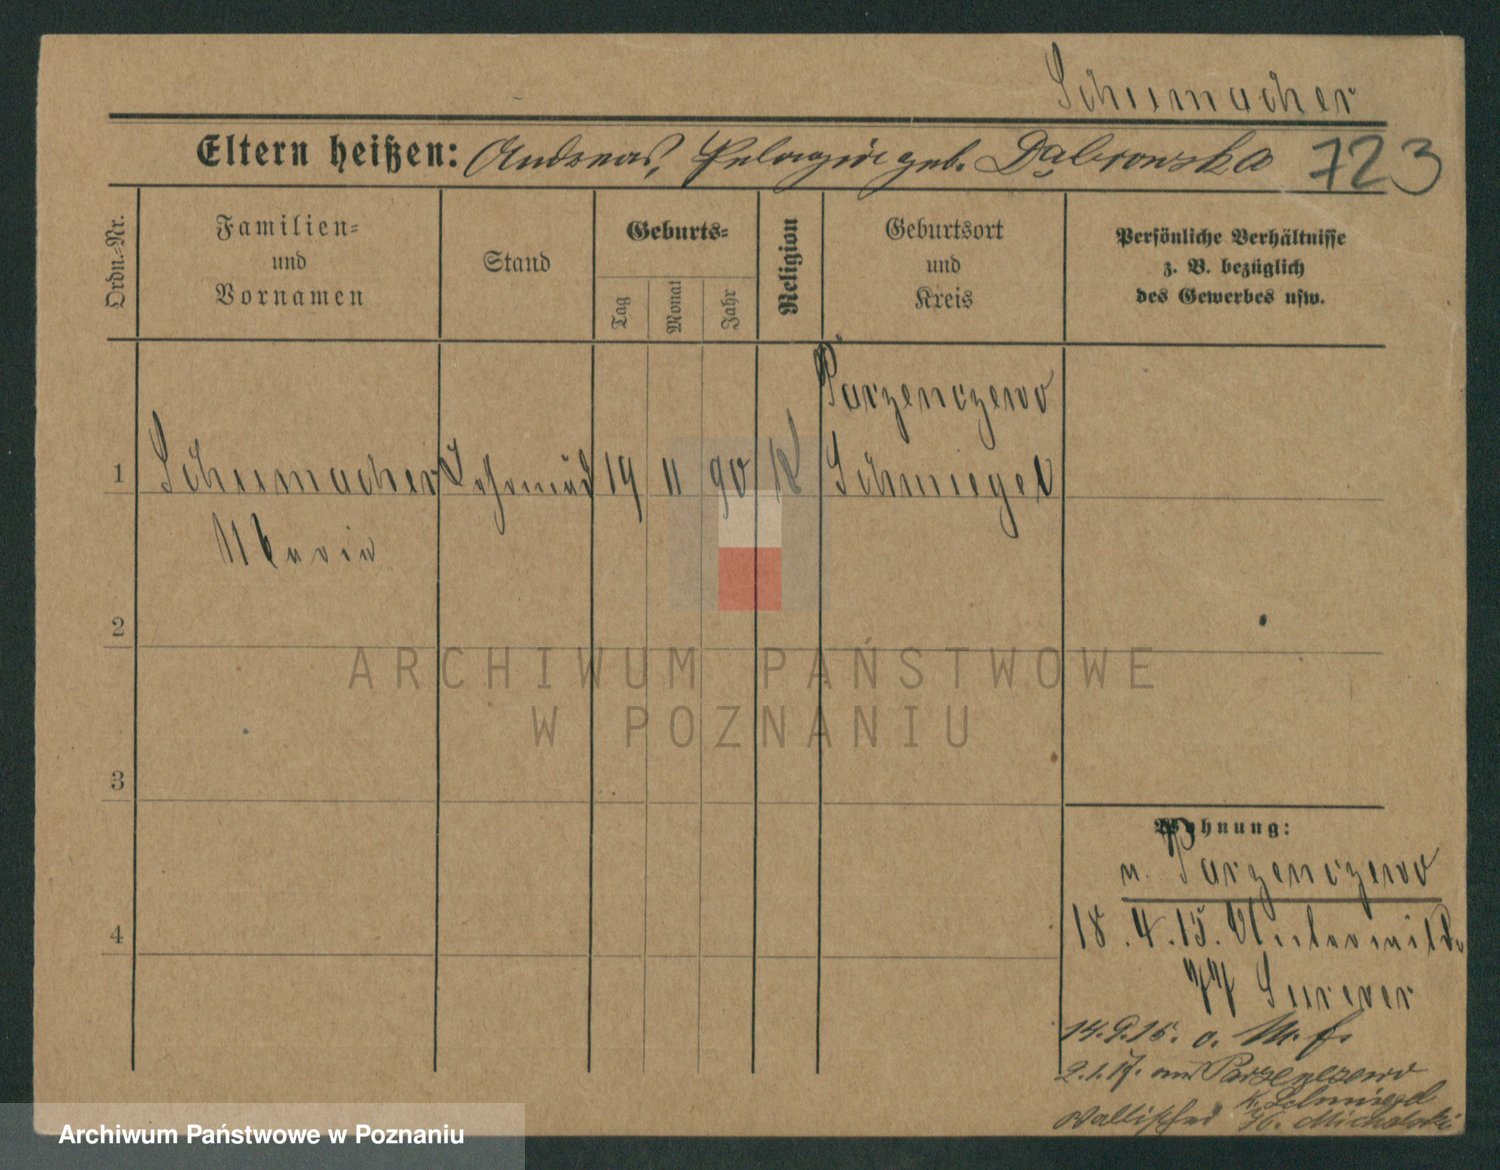 Schumacher
Eltern heißen: Andreas, Pelagia geb. Dąbrowska 723
Ordn.-Nr.
Familien-
und
Vornamen
Stand
Geburts-
Tag
Monat
Jahr
Religion
Geburtsort
und
Kreis
Persönliche Verhältnisse
z. B. bezüglich
des Gewerbes usw.
Parzenczewo
1 Schumacher 19 11 90 K Schmiegel
Maria
2
3
4
Wohnung:
n. Parzenczewo
18.4.15. Unterwilda
77 Surever
14.9.15. o.
2.1.17. Parzenczewo
K. Schmiegel
Wallischei Michalski
ARCHIWUM PAŃSTWOWE
W POZNANIU
Archiwum Państwowe w Poznaniu